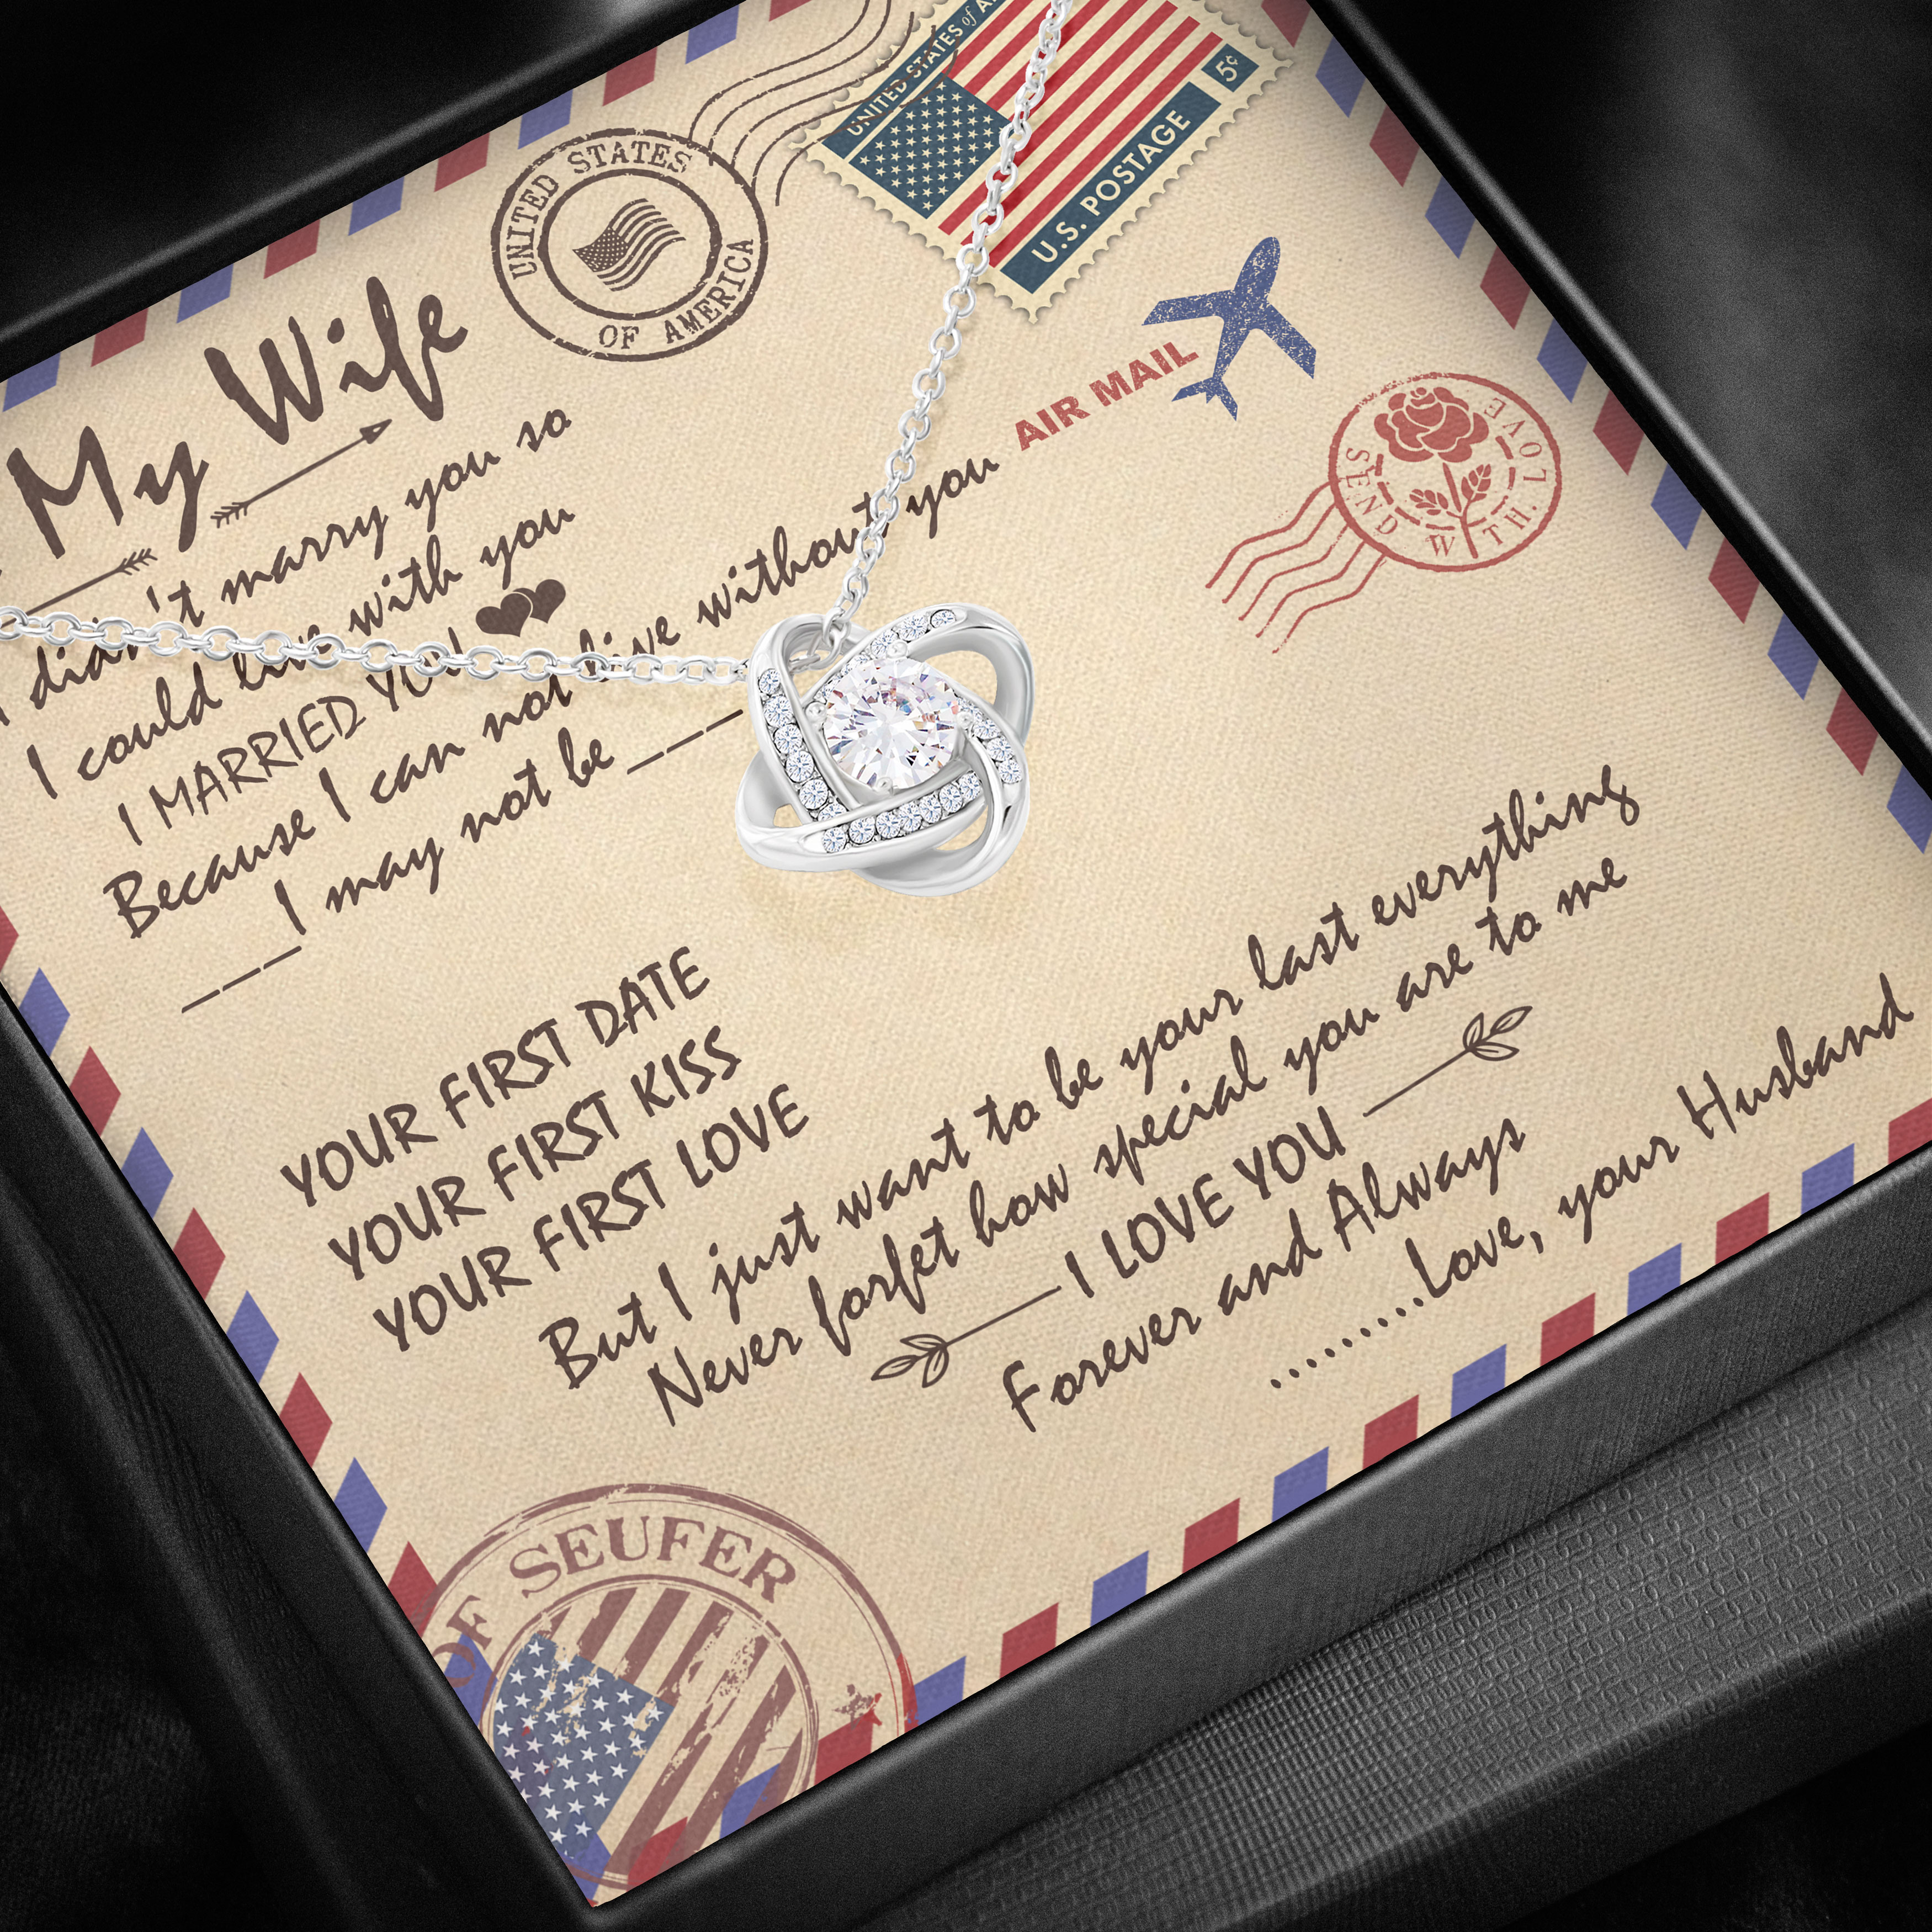 UNITED STATES of A
5¢
U.S. POSTAGE
UNITED STATES
OF AMERICA
AIR MAIL
SEND WITH LOVE
My Wife
I didn't marry you so
I could live with you
I MARRIED YOU
Because I can not live without you
I may not be
YOUR FIRST DATE
YOUR FIRST KISS
YOUR FIRST LOVE
But I just want to be your last everything
Never forfet how special you are to me
I LOVE YOU
Forever and Always
.........Love, your Husband
OF SEUFER